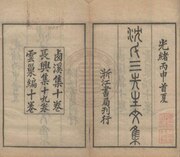 光緒丙申首夏
沈氏三先生文集
浙江書局刊行
西溪集十卷
長興集十九卷
雲巢編十卷